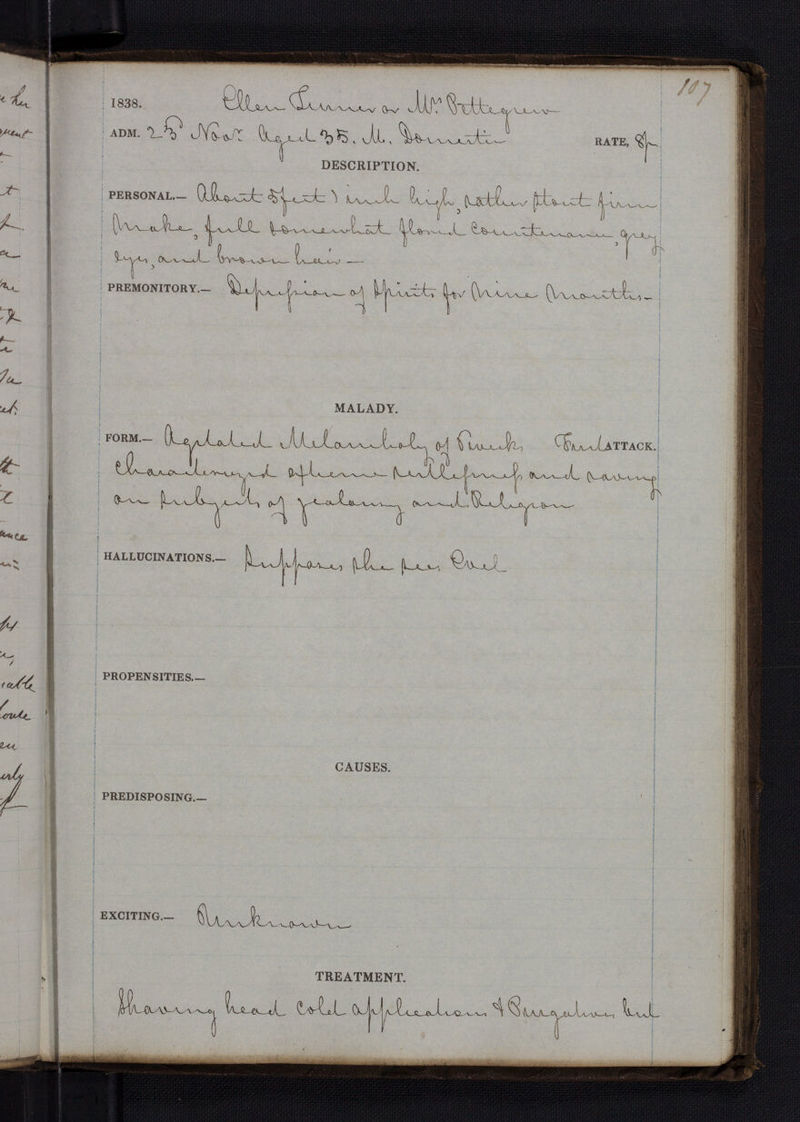 107
1838. Ellen Turner or Mrs Pettegrew
ADM. 23d Novr. Aged 35. M. Domestic RATE, 8/-
DESCRIPTION.
PERSONAL.— About 5 feet 1 inch high, rather stout firm
make, full somewhat florid countenance, grey
eyes, and brown hair —
PREMONITORY.— Depression of Spirits for Nine Months —
MALADY.
FORM.— Agitated Melancholy of weeks First ATTACK.
Characterized extreme restlessness and raving
on subjects of jealousy and Religion
HALLUCINATIONS.— Supposes she sees Evil
PROPENSITIES.—
CAUSES.
PREDISPOSING.—
EXCITING.— Unknown
TREATMENT.
Shaving head Cold applications & Purgatives but